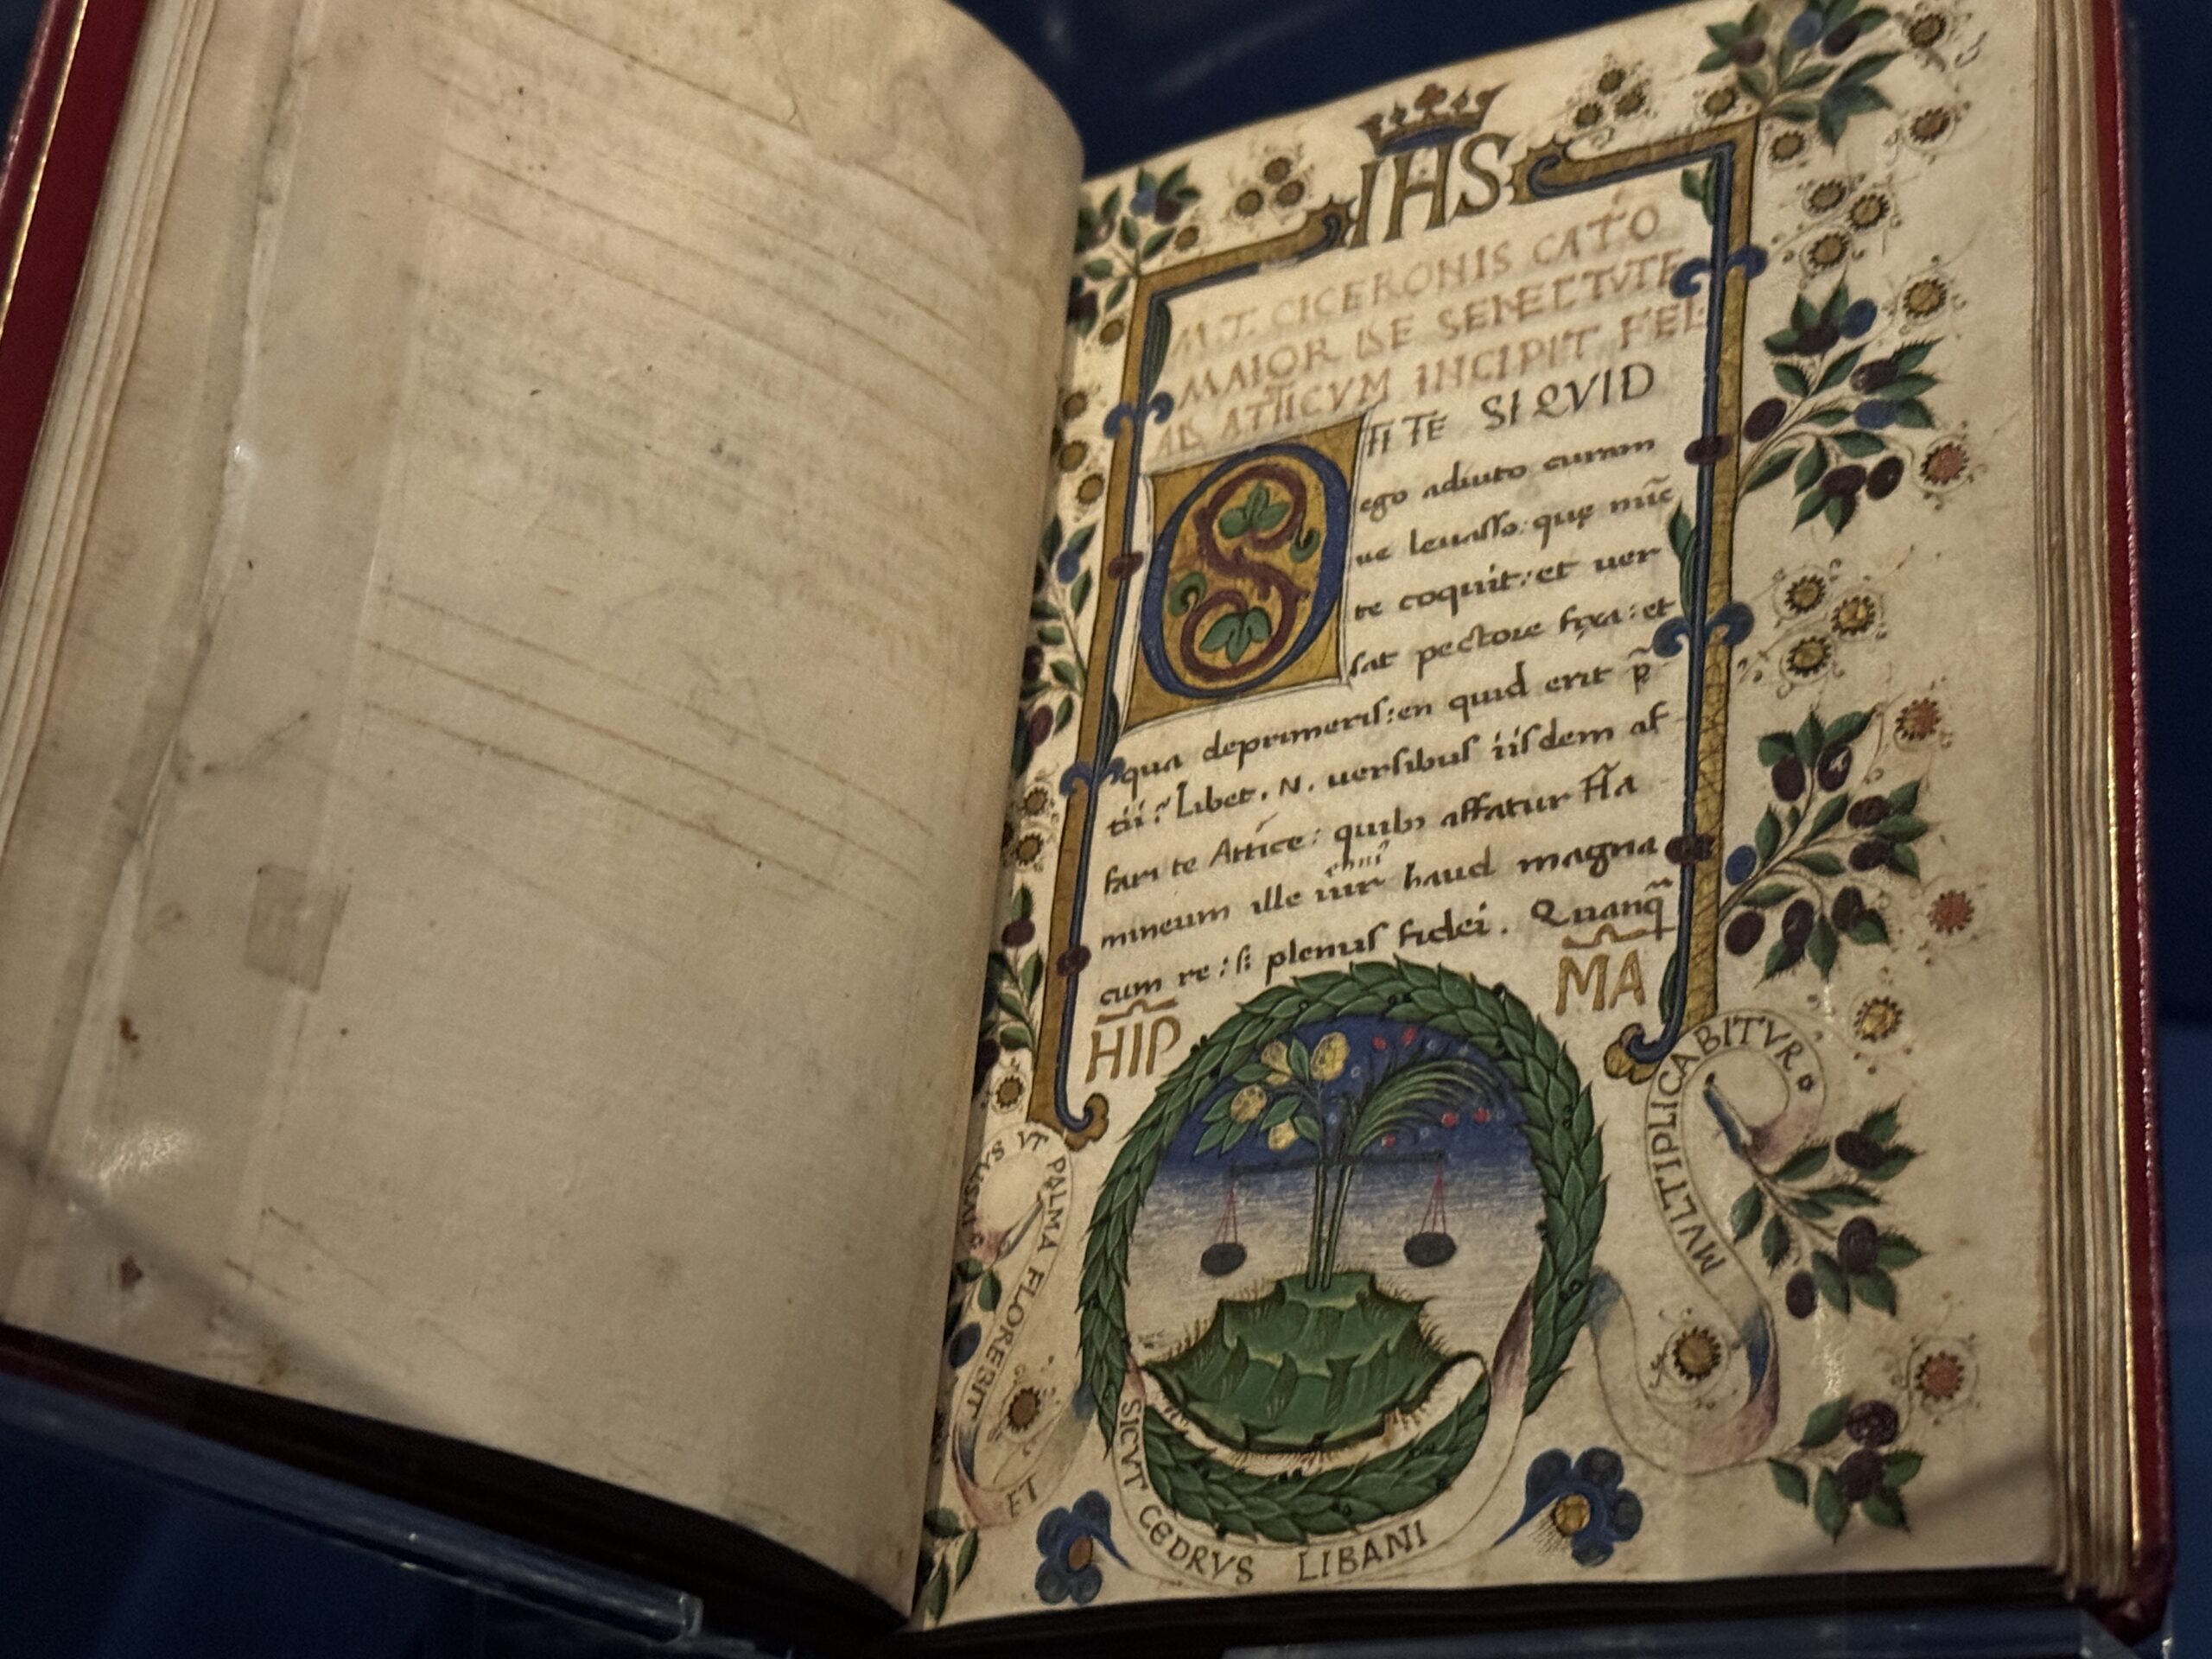 IHS
M.T. CICERONIS CATO
MAIOR DE SENECTVTE
AD ATTICVM INCIPIT FEL
O TITE SI QVID
ego adiuto curam
ue leuasso: quę nūc
te coquit: et uer
sat pectore fixa: et
deprimeris: en quid erit p̄
tii? Libet. N. uersibus iisdem af
fari te Attice: quibꝫ affatur Fla
mineum ille uir haud magna
cum re: si plenus fidei. Quanq̄
HIP MA
IVSTVS VT PALMA FLOREBIT ET
SICVT CEDRVS LIBANI
MVLTIPLICABITVR